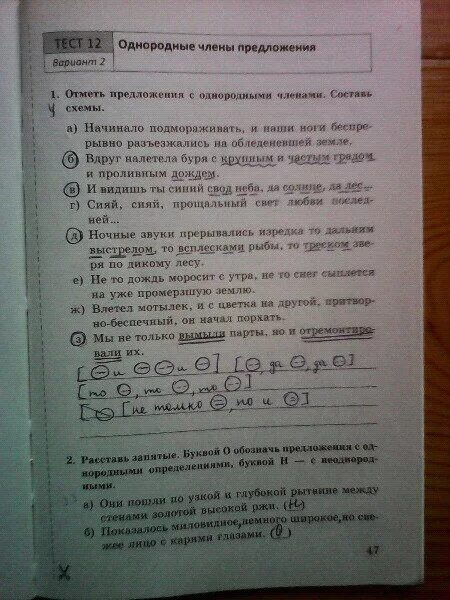 ТЕСТ 12
Вариант 2
Однородные члены предложения
1. Отметь предложения с однородными членами. Составь
схемы.
а) Начинало подмораживать, и наши ноги беспре-
рывно разъезжались на обледеневшей земле.
б) Вдруг налетела буря с крупным и частым градом
и проливным дождем.
в) И видишь ты синий свод неба, да солнце, да лес...
г) Сияй, сияй, прощальный свет любви послед-
ней...
д) Ночные звуки прерывались изредка то дальним
выстрелом, то всплесками рыбы, то треском зве-
ря по дикому лесу.
е) Не то дождь моросит с утра, не то снег сыплется
на уже промерзшую землю.
ж) Влетел мотылек, и с цветка на другой, притвор-
но-беспечный, он начал порхать.
з) Мы не только вымыли парты, но и отремонтиро-
вали их.
[О и О О и О] [О, да О, да О]
[то О, то О, то О]
[не только О, но и О]
2. Расставь запятые. Буквой О обозначь предложения с од-
нородными определениями, буквой Н — с неоднород-
ными.
а) Они пошли по узкой и глубокой рытвине между
стенами золотой высокой ржи. (Н)
б) Показалось миловидное, немного широкое, но све-
жее лицо с карими глазами. (О)
47